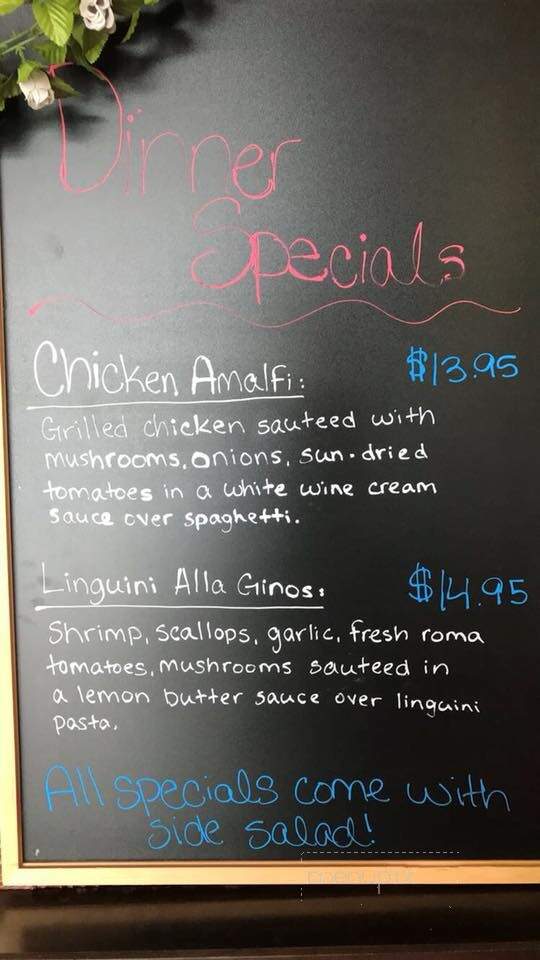 Dinner
Specials
Chicken Amalfi: $13.95
Grilled chicken sauteed with
mushrooms, onions, sun-dried
tomatoes in a white wine cream
sauce over spaghetti.
Linguini Alla Ginos: $14.95
Shrimp, scallops, garlic, fresh roma
tomatoes, mushrooms sauteed in
a lemon butter sauce over linguini
pasta.
All specials come with
side salad!